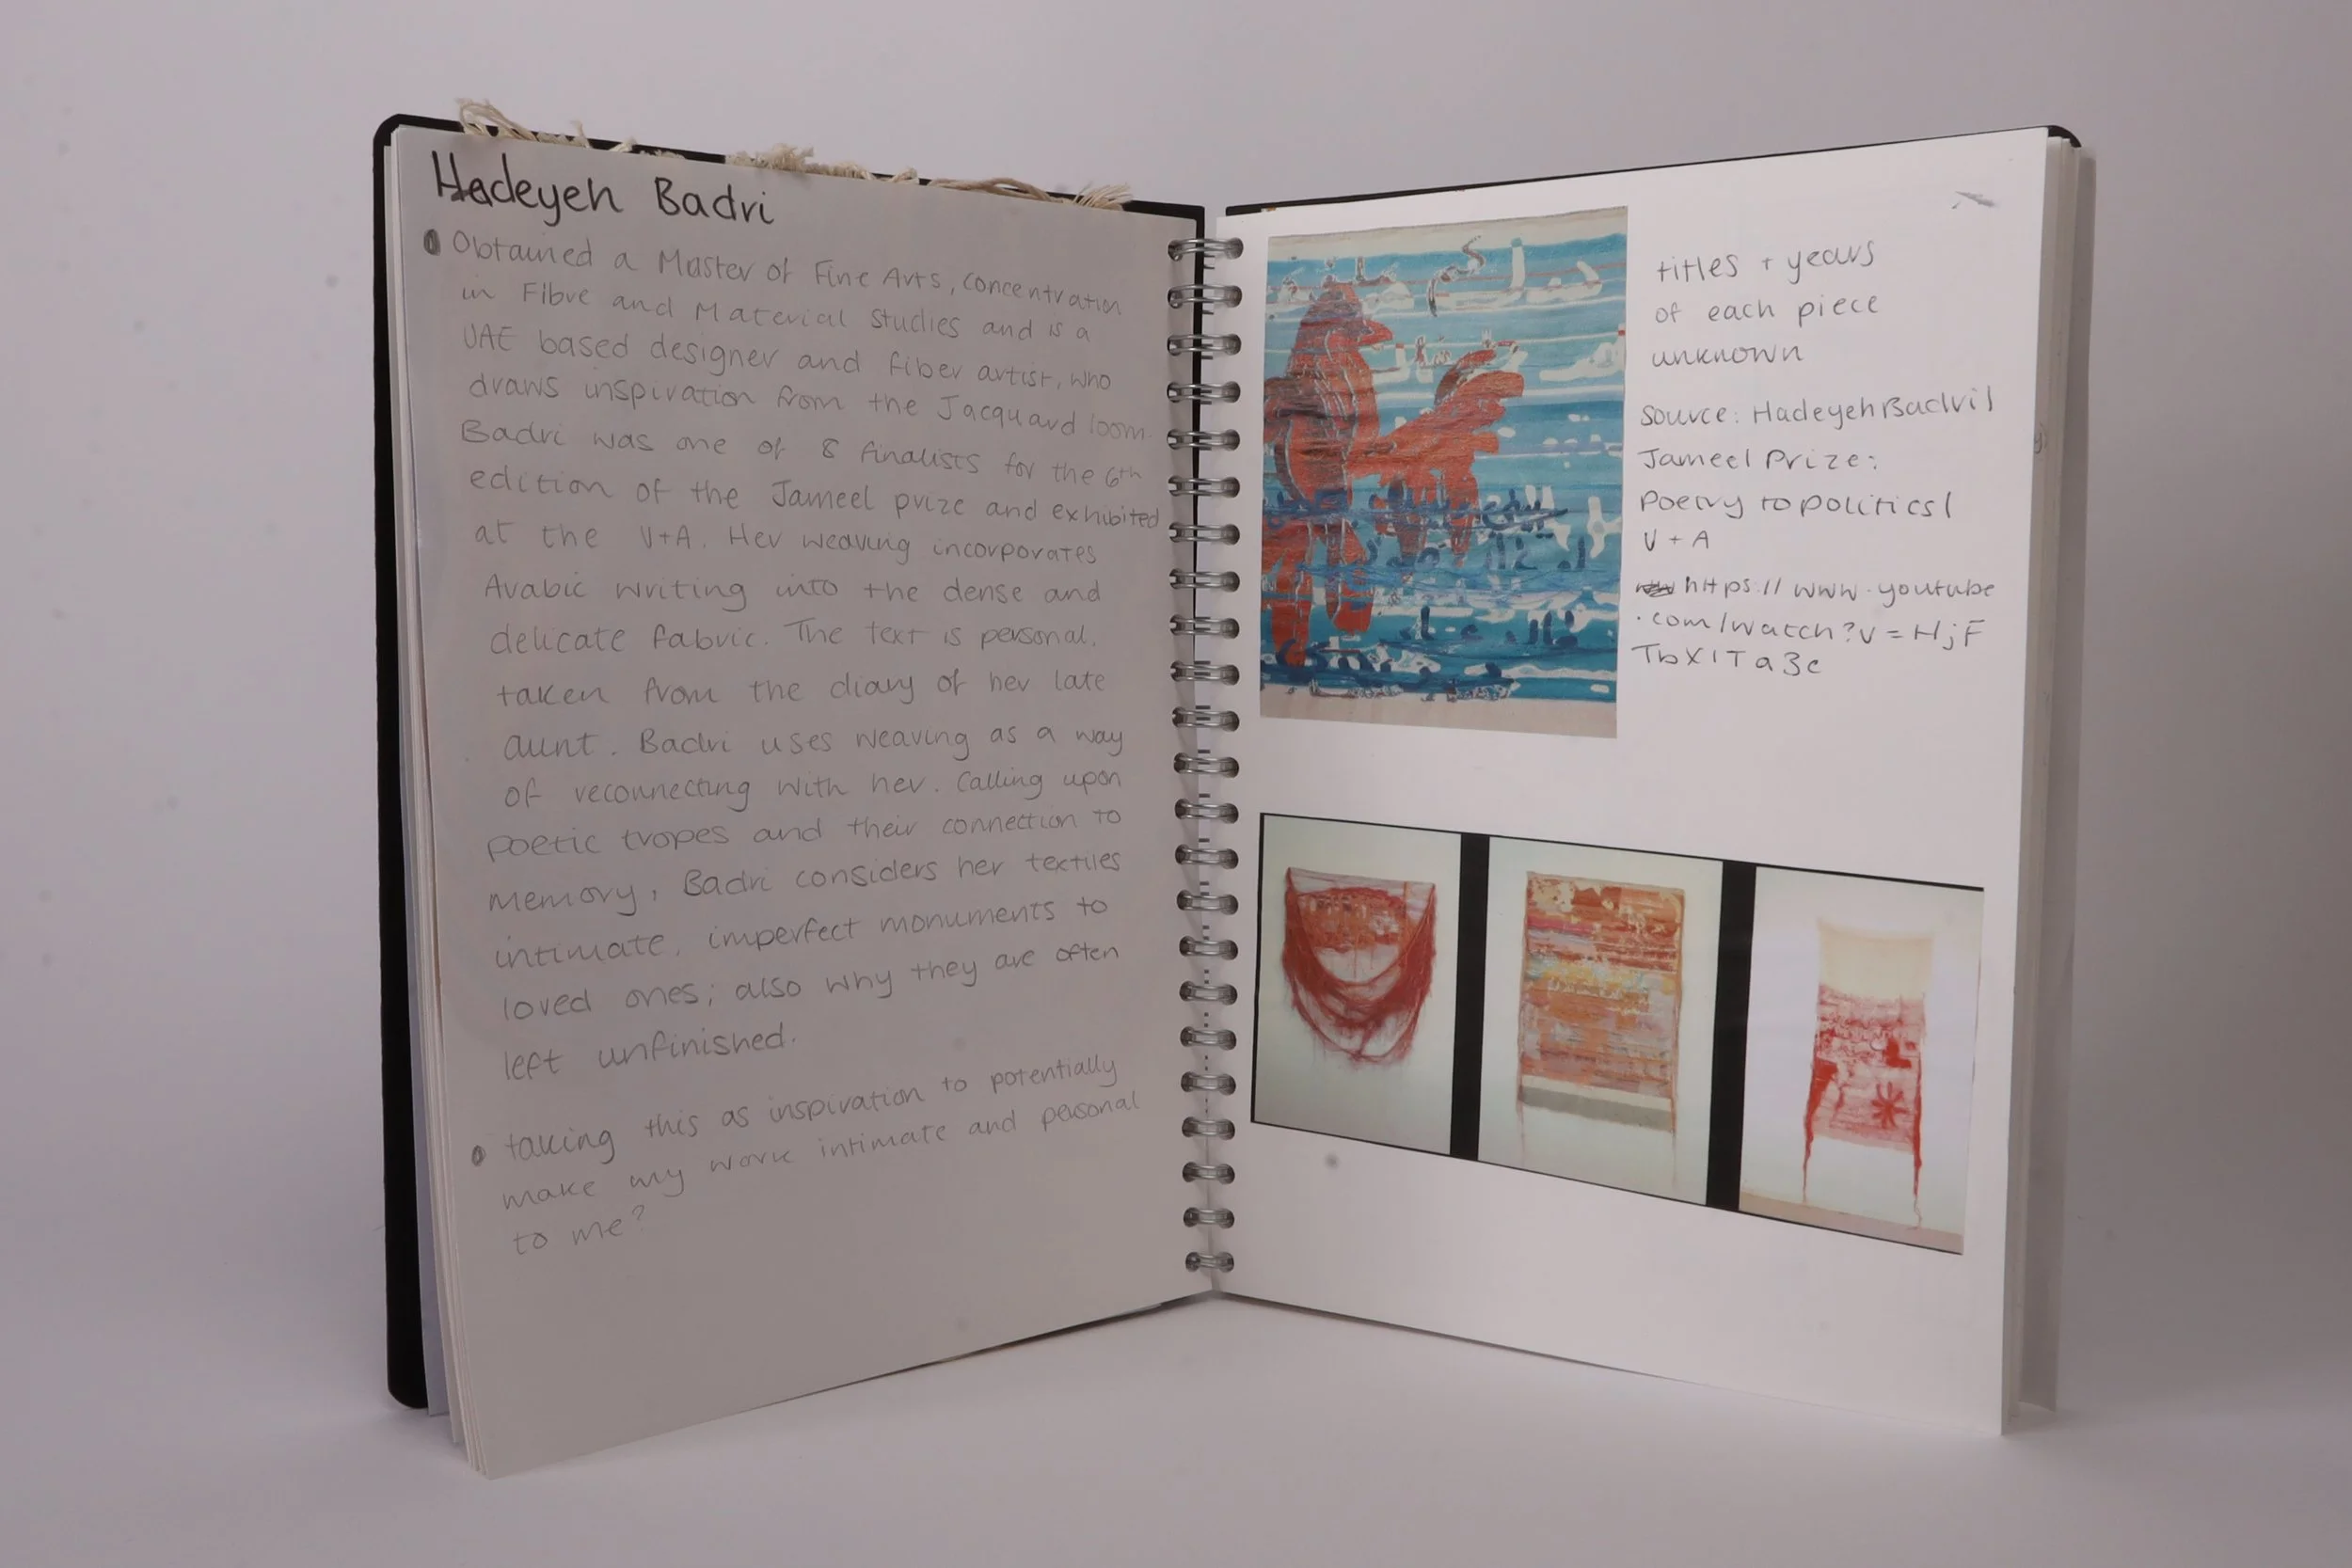 Hadeyeh Badri
Obtained a Master of Fine Arts, concentration
in Fibre and Material Studies and is a
UAE based designer and fiber artist, who
draws inspiration from the Jacquard loom.
Badri was one of 8 finalists for the 6th
edition of the Jameel prize and exhibited
at the V+A. Her weaving incorporates
Arabic writing into the dense and
delicate fabric. The text is personal,
taken from the diary of her late
aunt. Badri uses weaving as a way
of reconnecting with her. Calling upon
poetic tropes and their connection to
memory, Badri considers her textiles
intimate, imperfect monuments to
loved ones; also why they are often
left unfinished.
taking this as inspiration to potentially
make my work intimate and personal
to me?
titles + years
of each piece
unknown
Source: Hadeyeh Badri |
Jameel Prize:
Poetry to politics |
V + A
https://www.youtube
.com/watch?v=HjF
TbX1Ta3c